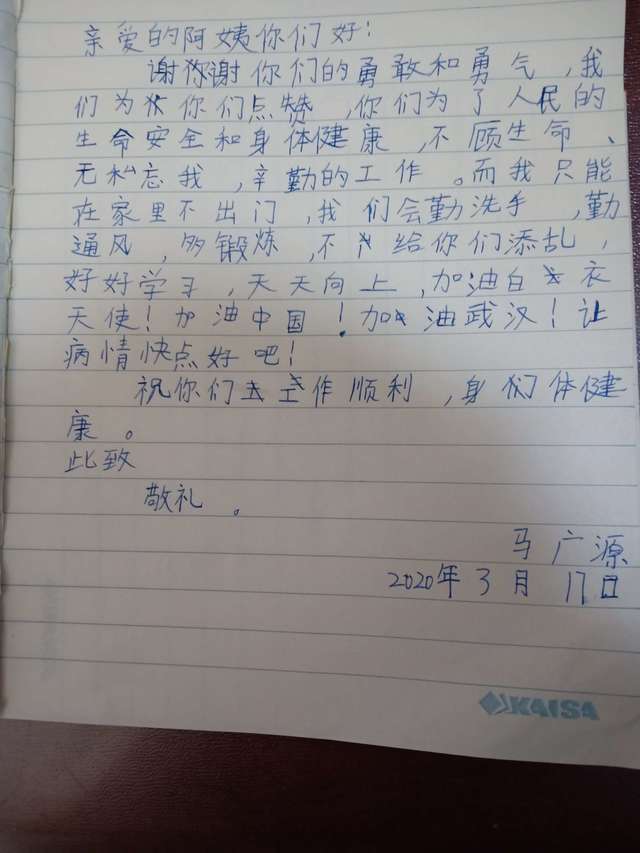 亲爱的阿姨你们好！
谢你谢你们的勇敢和勇气，我
们为你们点赞，你们为了人民的
生命安全和身体健康，不顾生命、
无私忘我，辛勤的工作。而我只能
在家里不出门，我们会勤洗手，勤
通风，多锻炼，不给你们添乱，
好好学习，天天向上，加油白衣
天使！加油中国！加油武汉！让
病情快点好吧！
祝你们工作顺利，身们体健
康。
此致
敬礼。
马广源
2020年3月17日
KAISA